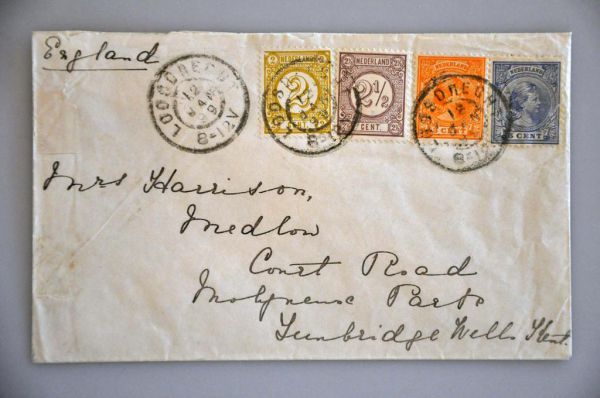 England
LOOSDRECHT
12
8-12V
NEDERLAND
2
CENT.
NEDERLAND
2½
CENT.
NEDERLAND
NEDERLAND
5 CENT
LOOSDRECHT
12
8-12V
Mrs Harrison,
Medlow
Court Road
Molyneux Park
Tunbridge Wells Kent.